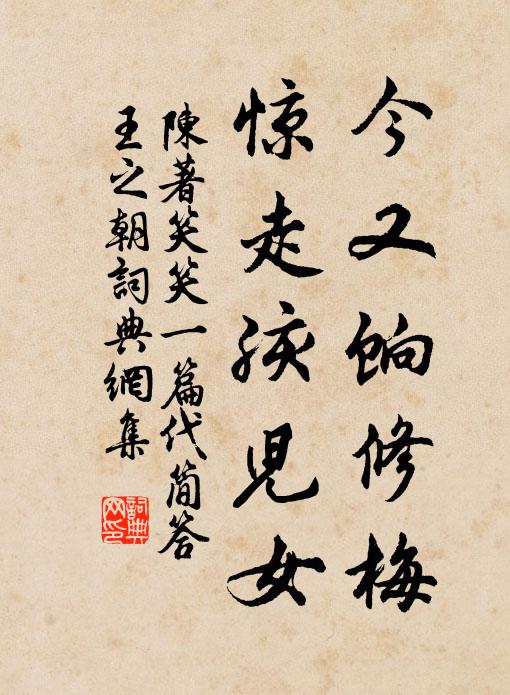 今又餉修梅
惊走孩児女
陳著笑笑一篇代简答
王之朝詞典網集
詞典
网印